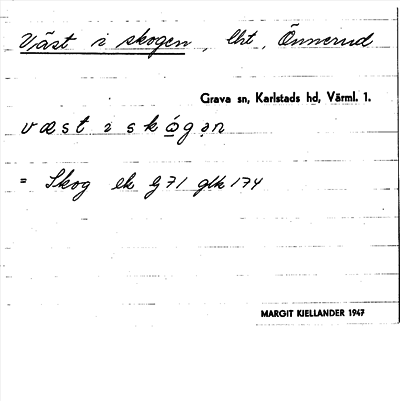 Väst i skogen, lht, Önnerud
Grava sn, Karlstads hd, Värml. l.
væst i skógən
= Skog ek G 71 glk 174
MARGIT KIELLANDER 1947